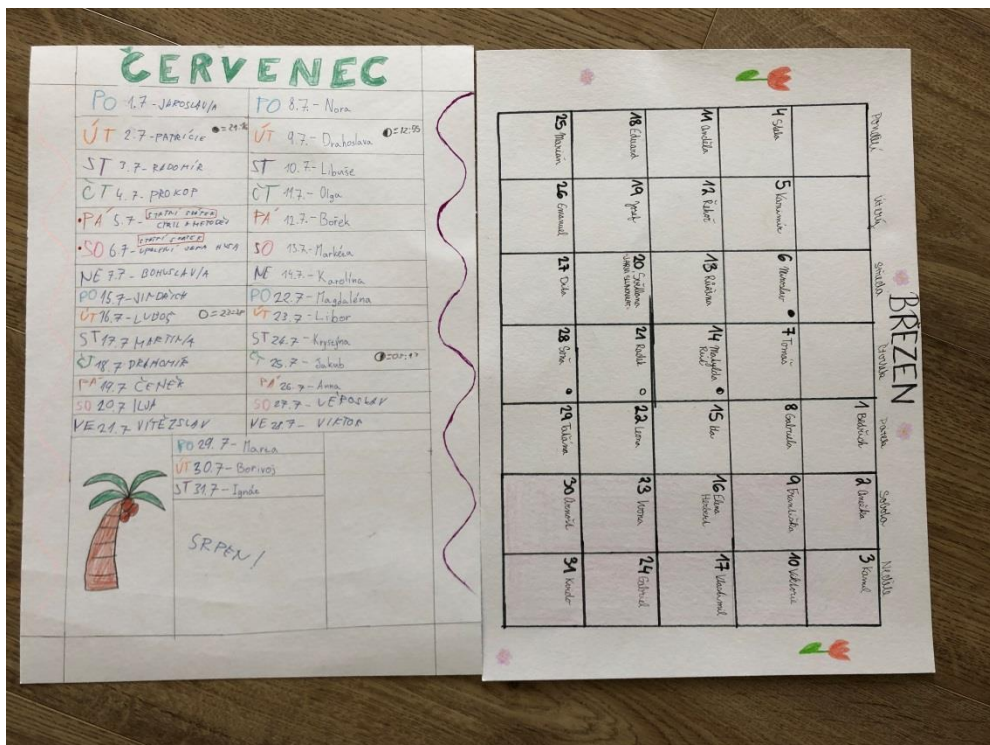 ČERVENEC
PO 1.7 - JAROSLAV/A
ÚT 2.7 - PATRICIE
ST 3.7 - RADOMÍR
ČT 4.7 - PROKOP
PÁ 5.7 - STÁTNÍ SVÁTEK
CYRIL A METODĚJ
SO 6.7 - STÁTNÍ SVÁTEK
UPÁLENÍ JANA HUSA
NE 7.7 - BOHUSLAV/A
PO 15.7 - JINDŘICH
ÚT 16.7 - LUBOŠ
ST 17.7 MARTIN/A
ČT 18.7 DRAHOMÍR
PÁ 19.7 ČENĚK
SO 20.7 ILJA
NE 21.7 VÍTĚZSLAV
PO 8.7 - Nora
ÚT 9.7. - Drahoslava =12:55
ST 10.7. - Libuše
ČT 11.7. - Olga
PÁ 12.7. - Bořek
SO 13.7. - Markéta
NE 14.7. - Karolína
PO 22.7 - Magdaléna
ÚT 23.7 - Libor
ST 24.7 - Krystýna
ČT 25.7 - Jakub
PÁ 26.7 - Anna
SO 27.7 - VĚROSLAV
NE 28.7 - VIKTOR
PO 29.7 - Marta
ÚT 30.7 - Bořivoj
ST 31.7 - Ignác
SRPEN!
BŘEZEN
Pondělí Úterý Středa Čtvrtek Pátek Sobota Neděle
1 Bedřich 2 Anežka 3 Kamil
4 Stela 5 Kazimír 6 Miroslav 7 Tomáš 8 Gabriela 9 Františka 10 Viktorie
11 Anděla 12 Řehoř 13 Růžena 14 Matylda Rút 15 Ida 16 Elena Herbert 17 Vlastimil
18 Eduard 19 Josef 20 Světlana 21 Radek 22 Leona 23 Ivona 24 Gabriel
25 Marián 26 Emanuel 27 Dita 28 Soňa 29 Taťána 30 Arnošt 31 Kvido